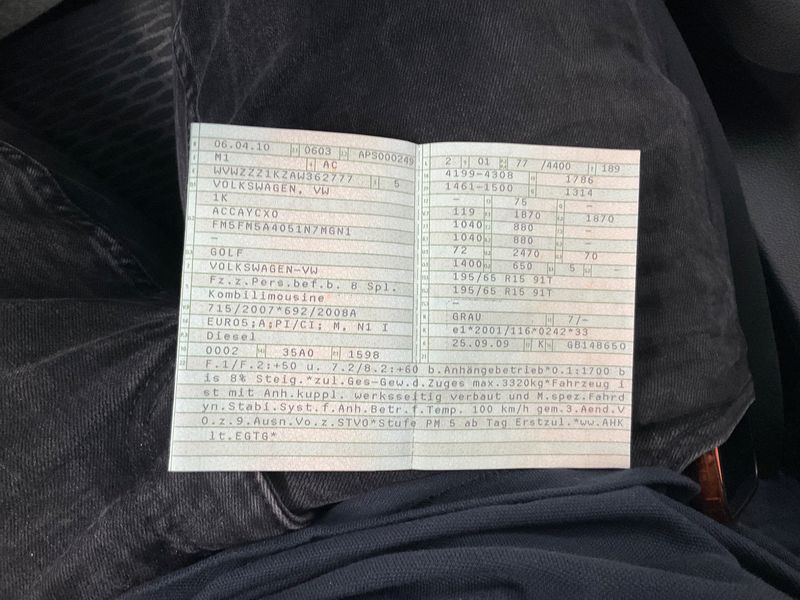 06.04.10 0603 APS000249
M1 AC
WVWZZZ1KZAW362777 5
VOLKSWAGEN, VW
1K
ACCAYCX0
FM5FM5A4051N7MGN1
–
GOLF
VOLKSWAGEN-VW
Fz.z.Pers.bef.b. 8 Spl.
Kombilimousine
715/2007*692/2008A
EURO5;A;PI/CI; M, N1 I
Diesel
0002 35A0 1598
2 01 77 /4400 189
4199-4308 1786
1461-1500 1314
– 75 –
119 1870 1870
1040 880 –
1040 880 –
72 2470 70
1400 650 5 –
195/65 R15 91T
195/65 R15 91T
–
GRAU 7/–
e1*2001/116*0242*33
25.09.09 K GB148650
F.1/F.2:+50 u. 7.2/8.2:+60 b.Anhängebetrieb*O.1:1700 b
is 8% Steig.*zul.Ges-Gew.d.Zuges max.3320kg*Fahrzeug i
st mit Anh.kuppl. werksseitig verbaut und M.spez.Fahrd
yn.Stabi.Syst.f.Anh.Betr.f.Temp. 100 km/h gem.3.Aend.V
O.z.9.Ausn.Vo.z.STVO*Stufe PM 5 ab Tag Erstzul.*ww.AHK
lt.EGTG*